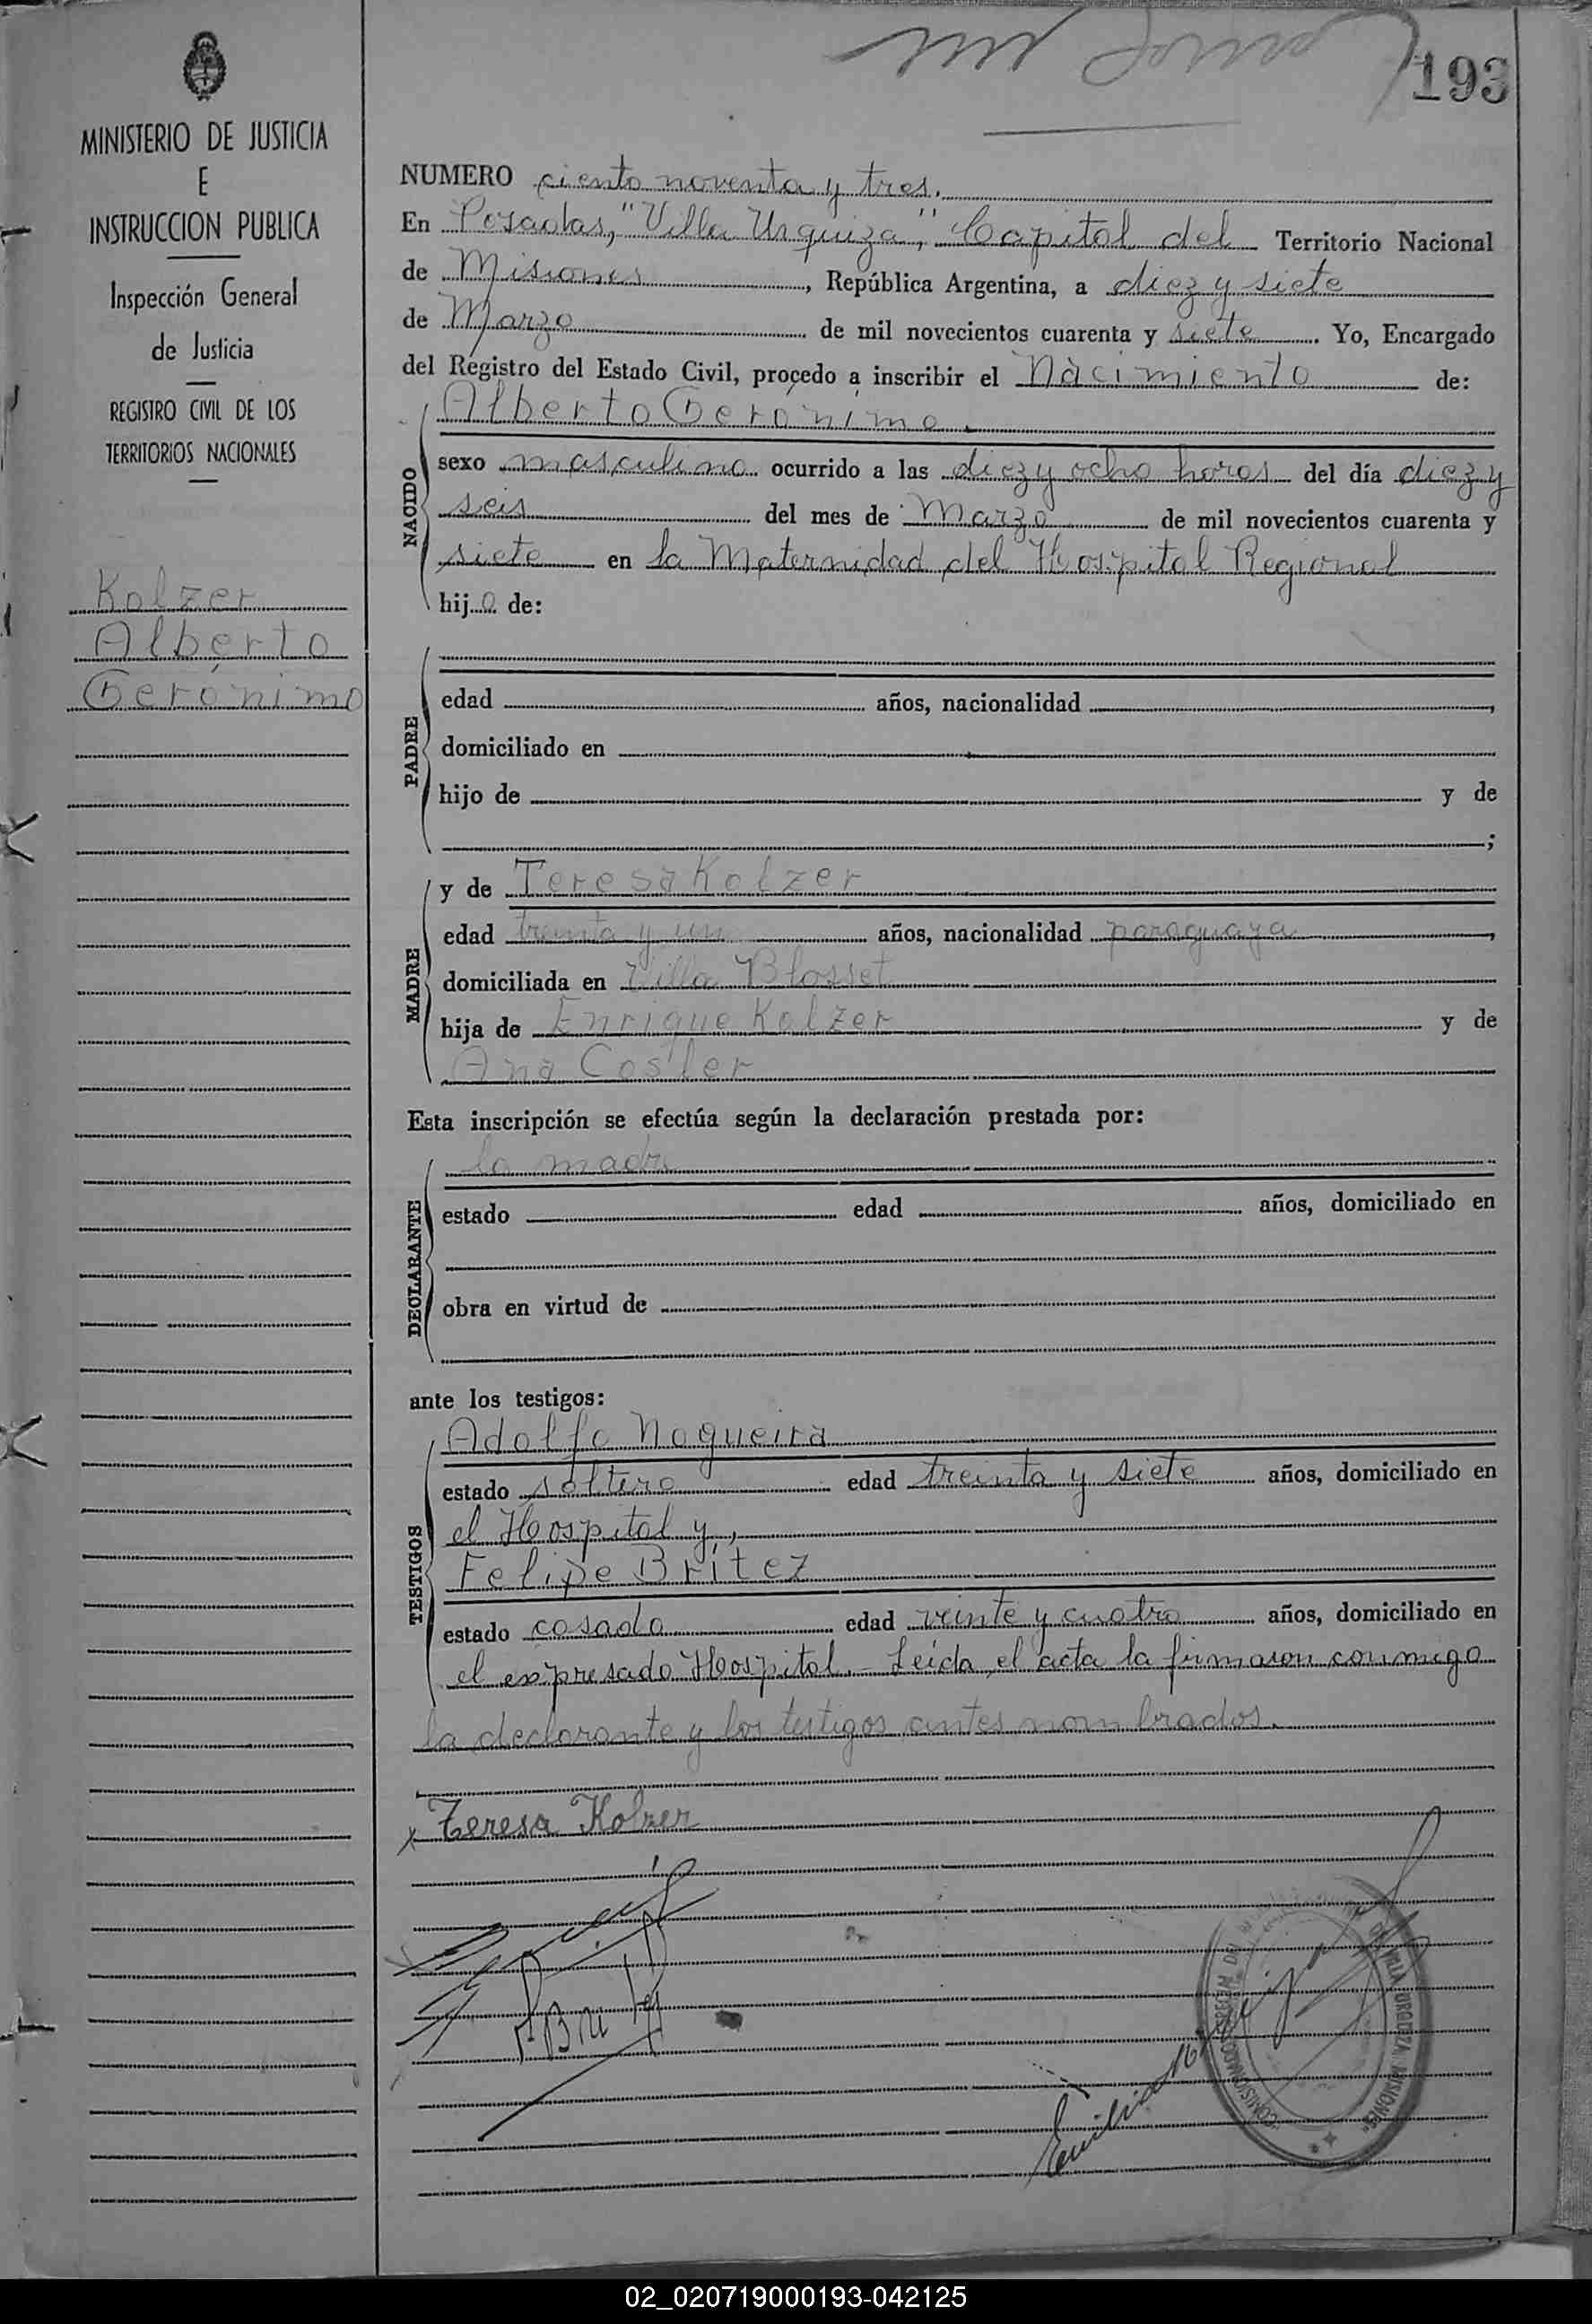 193
MINISTERIO DE JUSTICIA
E
INSTRUCCION PUBLICA
Inspección General
de Justicia
REGISTRO CIVIL DE LOS
TERRITORIOS NACIONALES
Kolzer
Alberto
Gerónimo
NUMERO ciento noventa y tres.
En Posadas, "Villa Urquiza", Capital del Territorio Nacional
de Misiones, República Argentina, a diez y siete
de Marzo de mil novecientos cuarenta y siete. Yo, Encargado
del Registro del Estado Civil, procedo a inscribir el Nacimiento de:
NACIDO
Alberto Gerónimo.
sexo masculino ocurrido a las diez y ocho horas del día diez y
seis del mes de Marzo de mil novecientos cuarenta y
siete en la Maternidad del Hospital Regional
hijo de:
PADRE
edad años, nacionalidad ,
domiciliado en
hijo de y de
;
MADRE
y de Teresa Kolzer
edad treinta y un años, nacionalidad paraguaya,
domiciliada en Villa Blosset
hija de Enrique Kolzer y de
Ana Cosler
Esta inscripción se efectúa según la declaración prestada por:
DECLARANTE
la madre
estado edad años, domiciliado en
obra en virtud de
ante los testigos:
TESTIGOS
Adolfo Nogueira
estado soltero edad treinta y siete años, domiciliado en
el Hospital y,
Felipe Britez
estado casado edad veinte y cuatro años, domiciliado en
el expresado Hospital.- Leída el acta la firmaron conmigo
la declarante y los testigos antes nombrados.
x Teresa Kolzer
F Britez
Emiliano
COMISIONADO ESPECIAL DE VILLA URQUIZA MISIONES
02_020719000193-042125